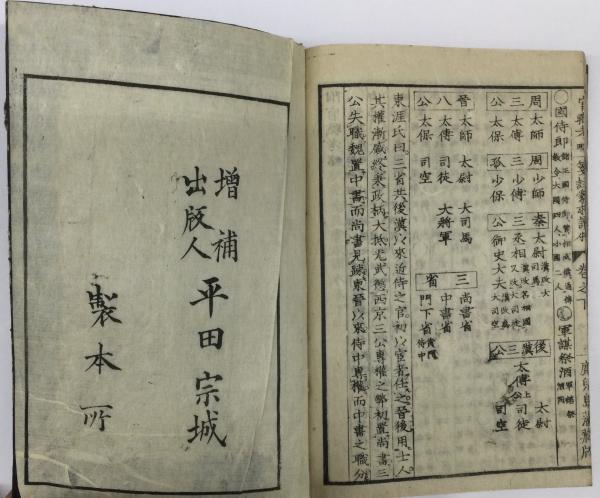 增補
出版人 平田宗城
製本所
卷之下
○國侍郎
軍謀祭酒
周三公 太師 太傅 太保
周三孤 少師 少傅 少保
秦三公 太尉 丞相 御史大夫
後漢三公 太尉 司徒 司空
太傅上公
晉八公 太師 太傅 太保 太尉 司徒 司空 大司馬 大將軍
三省 尚書省 中書省 門下省
東涯氏曰三省共後漢以來近侍之官初以宦者任之晉後用士人
其權漸盛終秉政柄大抵光武德西京三公專權之弊初置尚書三
公失職魏置中書而尚書見疎東晉以來侍中專權而中書之職分